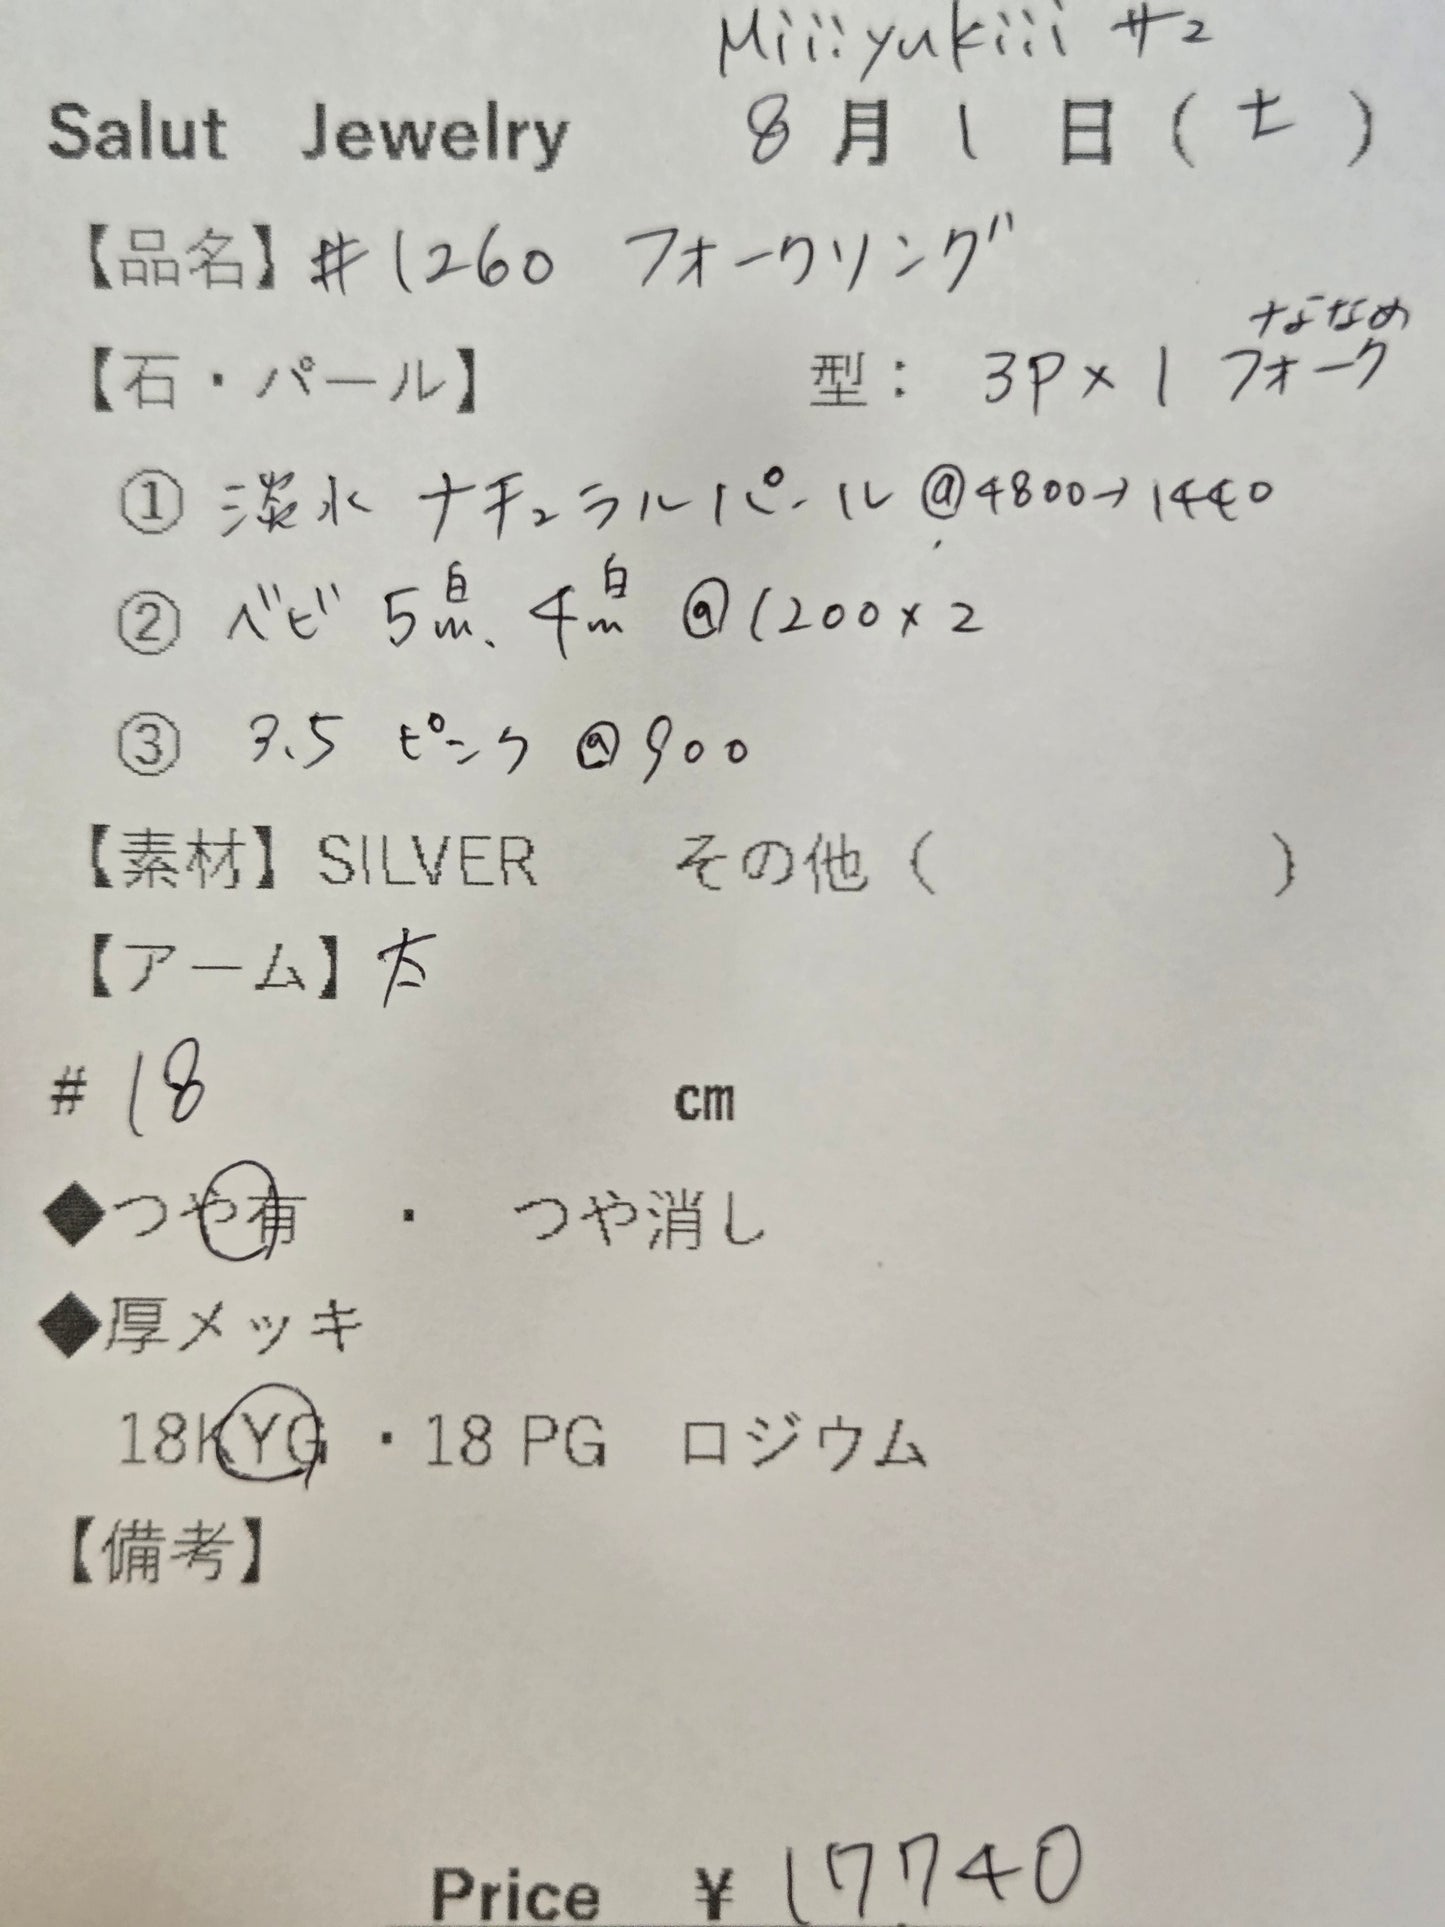 Miiiyukiii サン
Salut Jewelry 8月1日(土)
【品名】#1260 フォークリング
ななめ
【石・パール】 型: 3P×1 フォーク
① 淡水 ナチュラルパール @4800→1440
② ベビ 5m白、4m白 @1200×2
③ 3.5 ピンク @900
【素材】SILVER その他( )
【アーム】太
# 18 cm
◆つや有 ・ つや消し
◆厚メッキ
18KYG ・18 PG ロジウム
【備考】
Price ¥17740